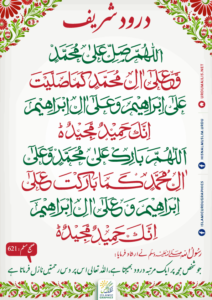 درود شریف
اللهم صل على محمد
وعلى آل محمد كما صليت
على إبراهيم وعلى آل إبراهيم
إنك حميد مجيد
اللهم بارك على محمد وعلى
آل محمد كما باركت على
إبراهيم وعلى آل إبراهيم
إنك حميد مجيد
621
رسول اللہ صلی اللہ علیہ وسلم نے ارشاد فرمایا:
جو شخص مجھ پر ایک مرتبہ درود بھیجتا ہے، اللہ تعالیٰ اس پر دس رحمتیں نازل فرماتا ہے